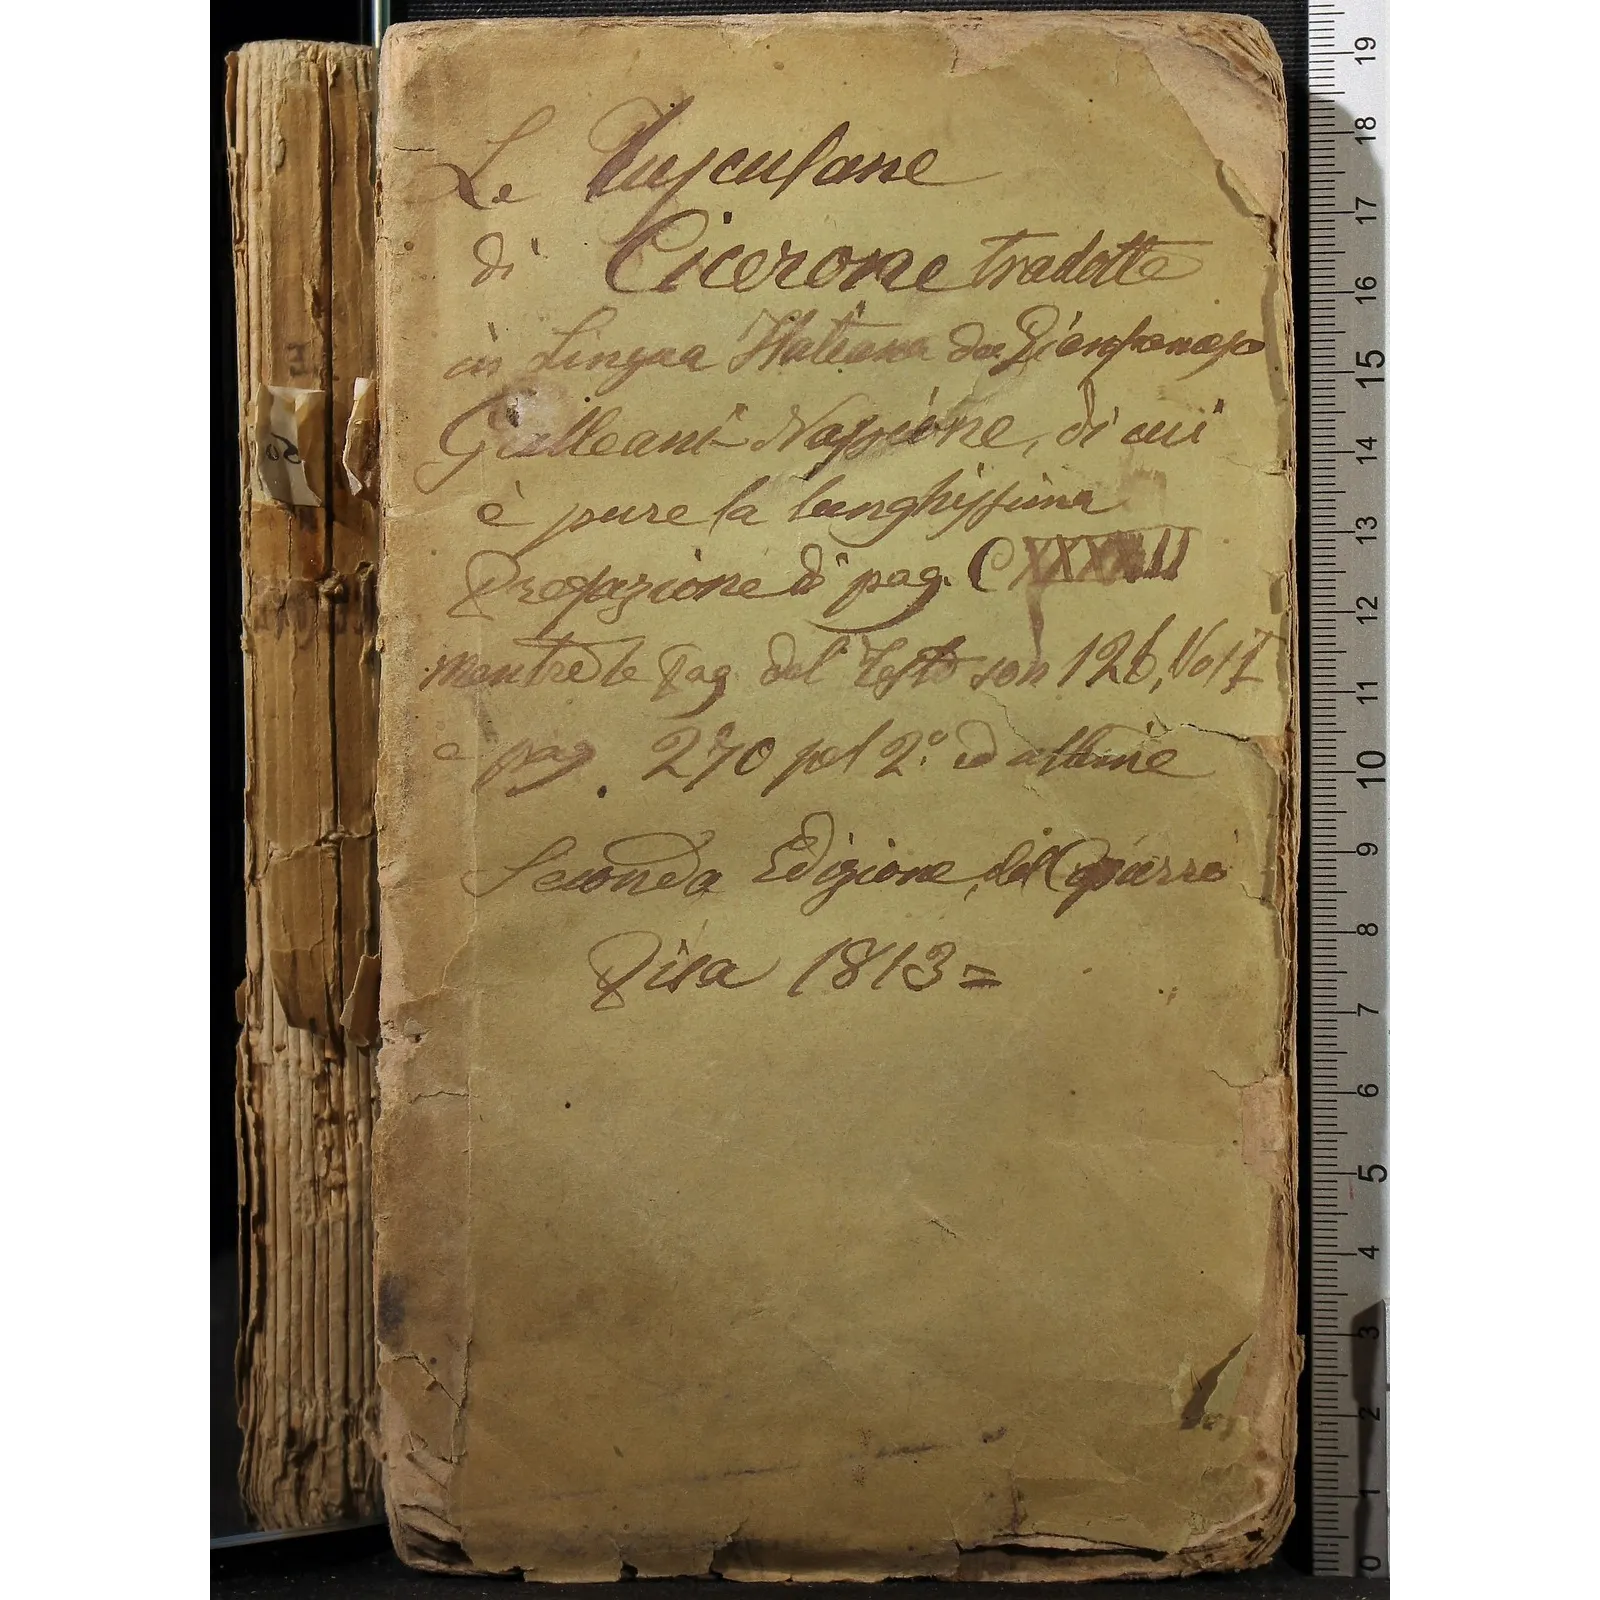 Le Tusculane
di Cicerone tradotte
in Lingua Italiana da Gianfrancesco
Galleani Napione, di cui
è pure la lunghissima
Prefazione di pag. CXXXXIII
mentre le Pag. del Testo son 126, Vol I
e pag. 270 pel 2.º ed ultime
Seconda Edizione del Capurro
Pisa 1813 =
19
18
17
16
15
14
13
12
11
10
9
8
7
6
5
4
3
2
1
0